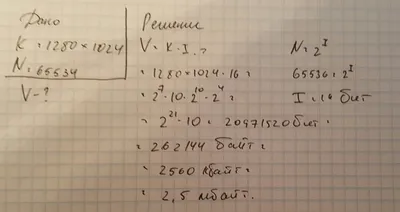 Дано
K = 1280×1024
N = 65534
V-?
Решение
V = K·I = ?
= 1280×1024·16 =
= 2^7·10·2^10·2^4 =
= 2^21·10 = 20971520 бит =
= 262144 байт =
= 2560 кбайт =
= 2,5 мбайт.
N = 2^I
65536 = 2^I
I = 16 бит